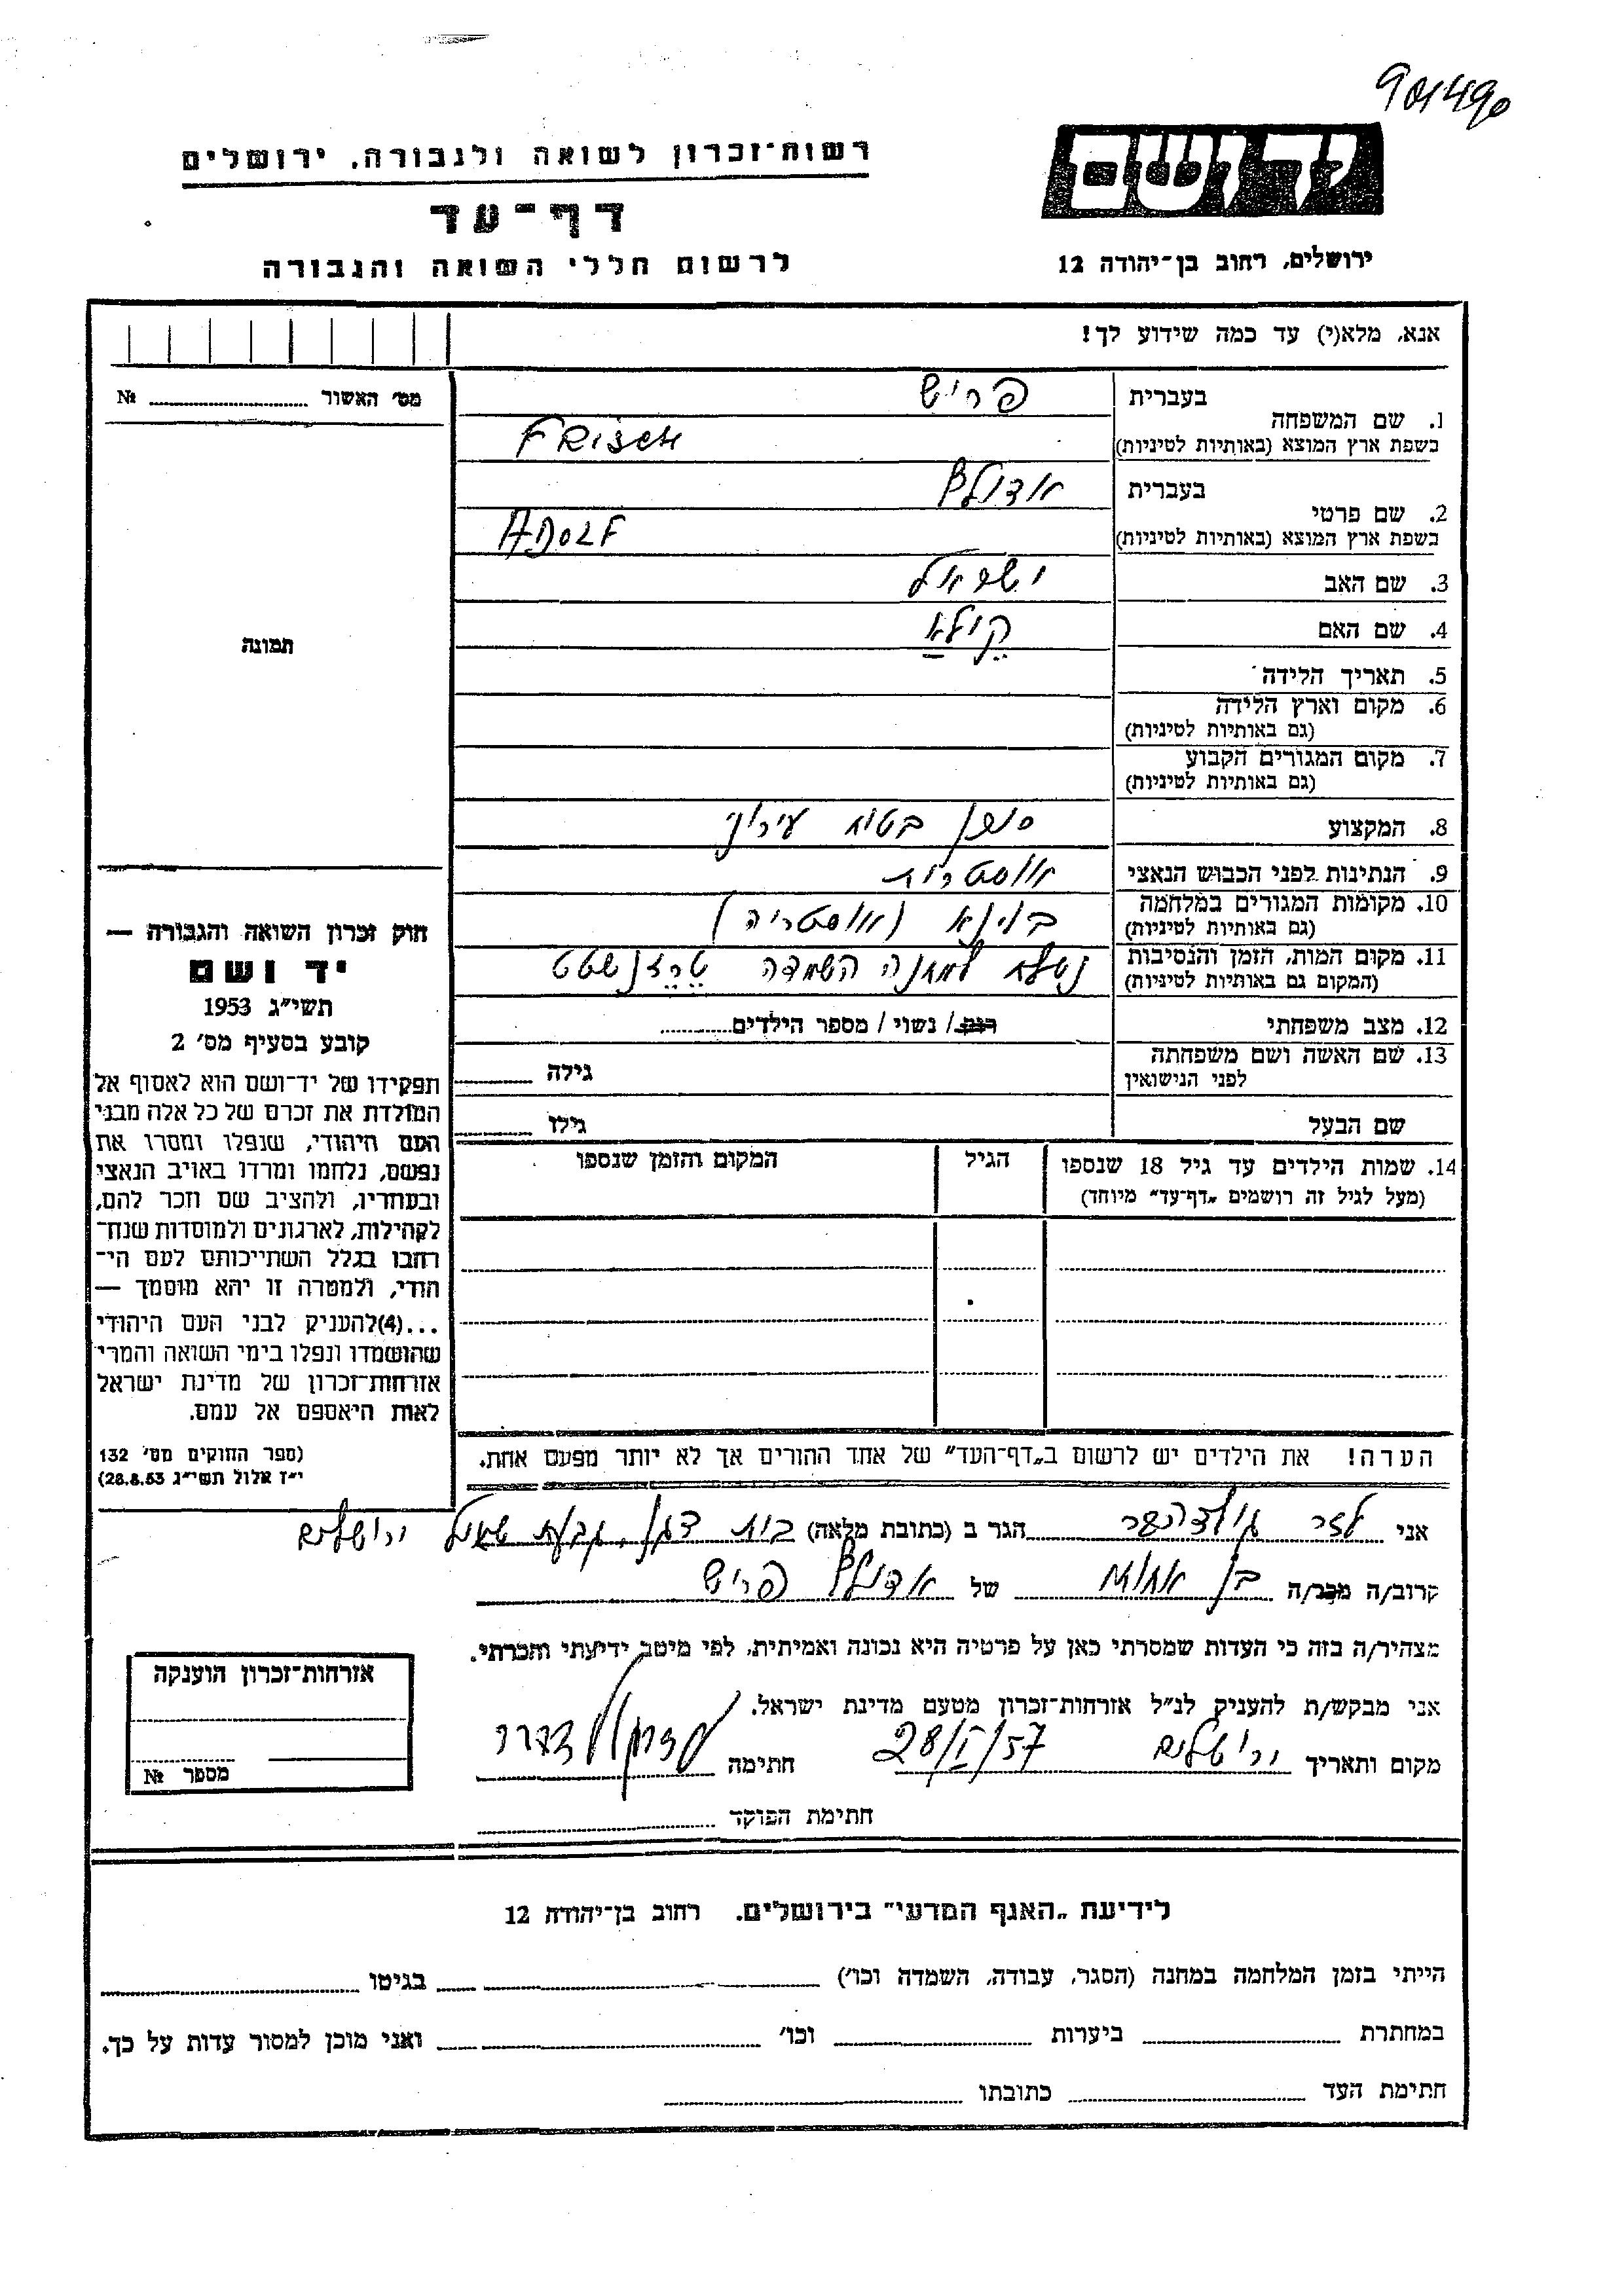 901490
רשות־זכרון לשואה ולגבורה, ירושלים
יד ושם
דף־עד
לרשום חללי השואה והגבורה
ירושלים, רחוב בן־יהודה 12
אנא, מלא(י) עד כמה שידוע לך!
מס׳ האשור № 
1. שם המשפחה בעברית פריש
בשפת ארץ המוצא (באותיות לטיניות) FRisch
2. שם פרטי בעברית אדולף
בשפת ארץ המוצא (באותיות לטיניות) ADOLF
3. שם האב ישראל
4. שם האם
תמונה
5. תאריך הלידה
6. מקום וארץ הלידה
(גם באותיות לטיניות)
7. מקום המגורים הקבוע
(גם באותיות לטיניות)
8. המקצוע סוכן בטוח עירוני
9. הנתינות לפני הכבוש הנאצי אוסטרית
10. מקומות המגורים במלחמה וינא (אוסטריה)
(גם באותיות לטיניות)
11. מקום המות, הזמן והנסיבות למחנה השמדה טרזנשטט
(המקום גם באותיות לטיניות)
12. מצב משפחתי רווק / נשוי / מספר הילדים
13. שם האשה ושם משפחתה גילה
לפני הנישואין
שם הבעל גילו
14. שמות הילדים עד גיל 18 שנספו הגיל המקום והזמן שנספו
(מעל לגיל זה רושמים „דף־עד״ מיוחד)
הערה! את הילדים יש לרשום ב„דף־העד״ של אחד ההורים אך לא יותר מפעם אחת.
חוק זכרון השואה והגבורה —
יד ושם
תשי״ג 1953
קובע בסעיף מס׳ 2
תפקידו של יד־ושם הוא לאסוף אל
המולדת את זכרם של כל אלה מבני
העם היהודי, שנפלו ומסרו את
נפשם, נלחמו ומרדו באויב הנאצי
ובעוזריו, ולהציב שם וזכר להם,
לקהילות, לארגונים ולמוסדות שנח־
רבו בגלל השתייכותם לעם הי־
הודי, ולמטרה זו יהא מוסמך —
...(4)להעניק לבני העם היהודי
שהושמדו ונפלו בימי השואה והמרי
אזרחות־זכרון של מדינת ישראל
לאות היאספם אל עמם.
(ספר החוקים מס׳ 132
י״ז אלול תשי״ג 28.8.53)
אני הגר ב (כתובת מלאה) בית דגן, גבעת שאול ירושלים
קרוב/ה מכר/ה בן אחות של אדולף פריש
מצהיר/ה בזה כי העדות שמסרתי כאן על פרטיה היא נכונה ואמיתית, לפי מיטב ידיעתי והכרתי.
אני מבקש/ת להעניק לנ״ל אזרחות־זכרון מטעם מדינת ישראל.
מקום ותאריך ירושלים 28/I/57 חתימה
חתימת הפוקד
אזרחות־זכרון הוענקה
מספר №
לידיעת „האגף המדעי״ בירושלים, רחוב בן־יהודה 12
הייתי בזמן המלחמה במחנה (הסגר, עבודה, השמדה וכו׳) בגיטו
במחתרת ביערות וכו׳ ואני מוכן למסור עדות על כך.
חתימת העד כתובתו